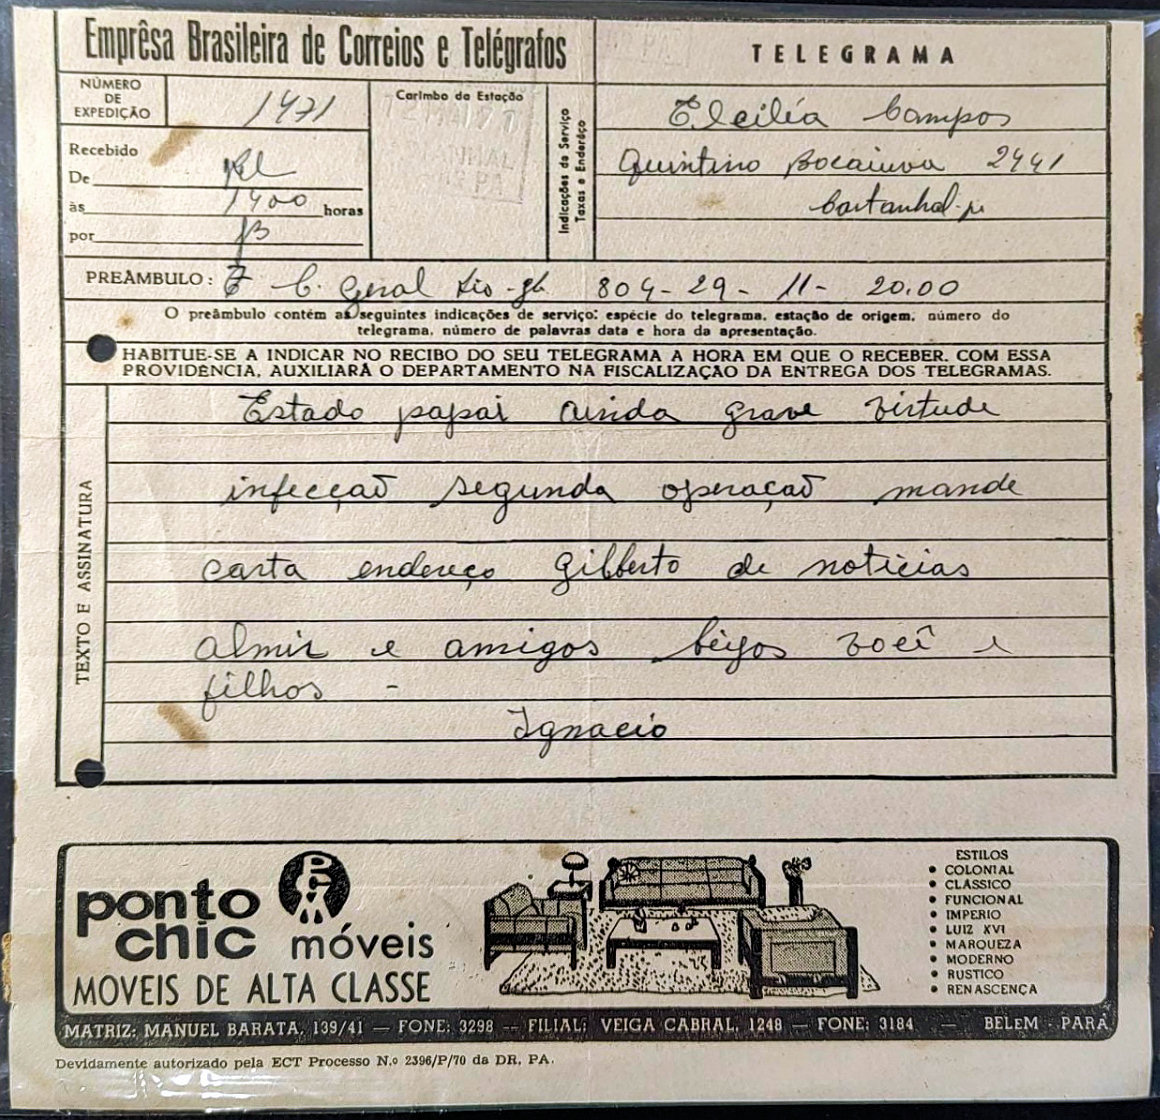 Emprêsa Brasileira de Correios e Telégrafos
TELEGRAMA
NÚMERO
DE
EXPEDIÇÃO
1471
Carimbo da Estação
Indicações de Serviço
Taxas e Endereço
Recebido
De
às 1400 horas
por
Elcilía Campos
Quintino Bocaiuva 2441
Castanhal-
PREÂMBULO: C. Geral Rio-gb 804-29-11-20.00
O preâmbulo contém as seguintes indicações de serviço: espécie do telegrama, estação de origem, número do
telegrama, número de palavras data e hora da apresentação.
HABITUE-SE A INDICAR NO RECIBO DO SEU TELEGRAMA A HORA EM QUE O RECEBER. COM ESSA
PROVIDÊNCIA, AUXILIARÁ O DEPARTAMENTO NA FISCALIZAÇÃO DA ENTREGA DOS TELEGRAMAS.
TEXTO E ASSINATURA
Estado papai ainda grave virtude
infecção segunda operação mande
carta endereço Gilberto de noticias
almir e amigos beijos você e
filhos -
Ignacio
ponto
chic móveis
PCM
MOVEIS DE ALTA CLASSE
ESTILOS
• COLONIAL
• CLÁSSICO
• FUNCIONAL
• IMPERIO
• LUIZ XVI
• MARQUEZA
• MODERNO
• RUSTICO
• RENASCENÇA
MATRIZ: MANUEL BARATA, 139/41 — FONE: 3298 — FILIAL: VEIGA CABRAL, 1248 — FONE: 3184 — BELEM - PARÁ
Devidamente autorizado pela ECT Processo N.º 2396/P/70 da DR. PA.